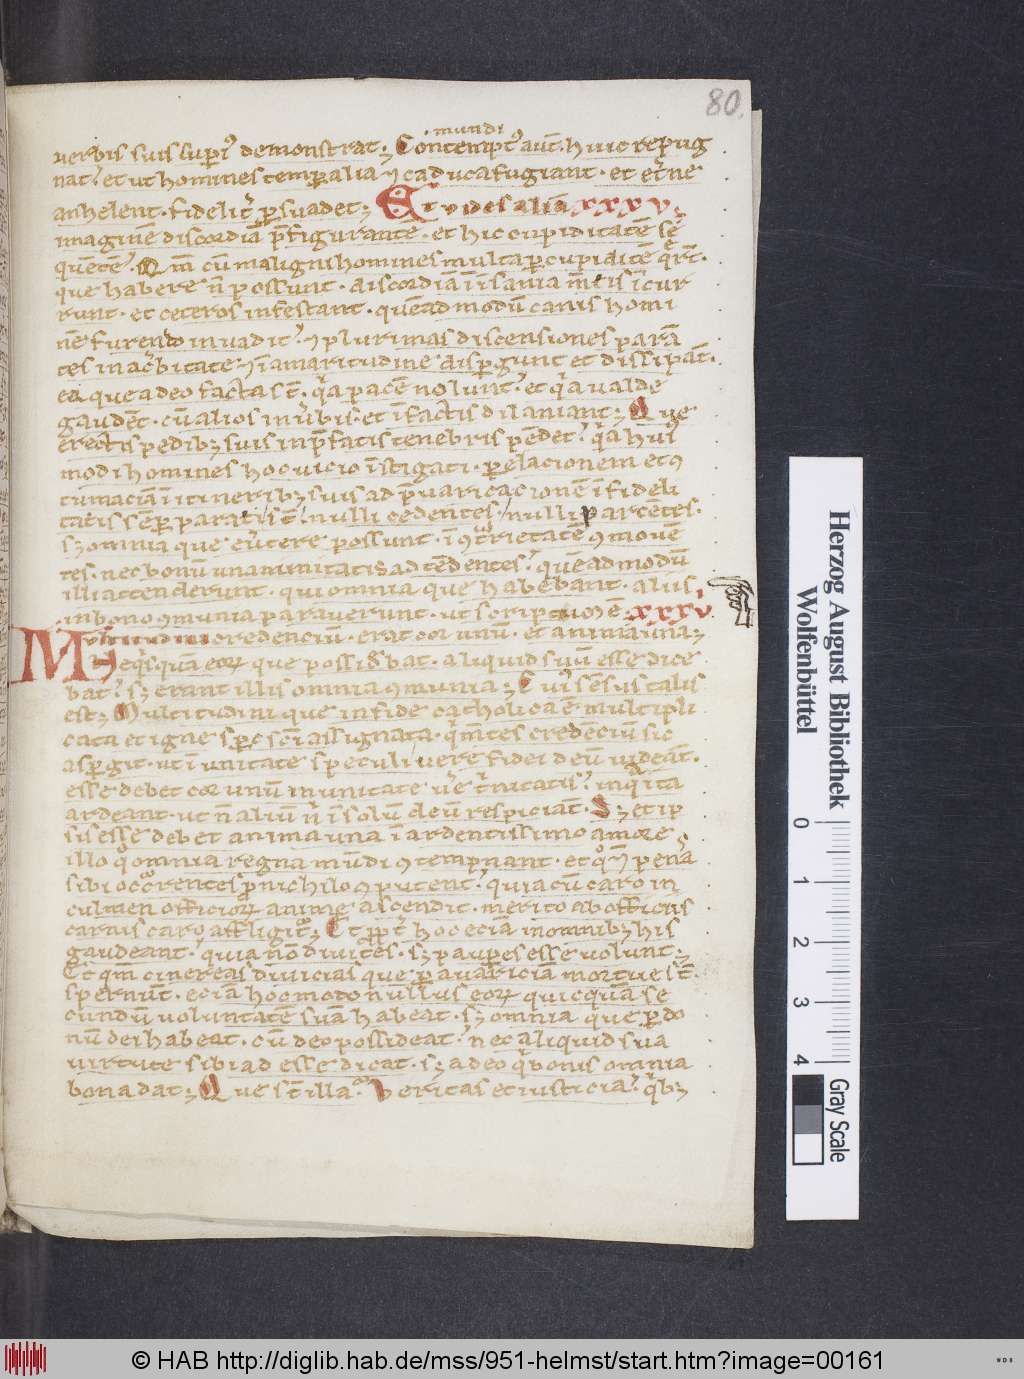 80.
mundi
uerbis suis supi⁹ demonstrat; Contempt⁹ aut̄ huic repug
nat. et ut homines temꝑalia ⁊ caduca fugiant. et et̄ne
anhelent. fidelit̄ ꝑsuadet; Et vides aliā xxxv;
imaginē discordiā p̄figurantē. et hic cupiditatē sē
quētē. Qm̄ cū maligni homines multa ꝑ cupiditē q̄rt̄.
que habere n̄ possunt. discordiā ī īsania mentis īcur
runt. et ceteros infestant. quēadmodū canis homi
nē furendo inuadit. ⁊ plurimas discensiones parā
tes in ac̄bitate ⁊ ī amaritudine disꝑgunt et dissipāt.
ea que a deo facta st̄. q̄a pacē nolunt. et q̄a ualde
gaudēt. cū alios in ūbis. et ī factis dilaniant; Que
erectis pedibꝫ suis in p̄fatis tenebris pēdet. q̄a hui⁹
modi homines hoc uicio īstigati. ꝑ elacionem et ꝯ
tumaciā ī itineribꝫ suis ad p̄uaricacionē ī fideli
tatis sēꝑ parati st̄. nulli cedentes. nulli parcētes.
sꝫ omnia que eūtere possunt. ī ꝯt̄rietatē ꝯmouē
tes. nec bonū unanimitatis adtēdentes. quēadmodū
illi attenderunt. qui omnia que habebant. alius
in bono ꝯmunia parauerunt. ut scriptum ē. xxxvi
Multitudini credenciū. erat cor unū. et anima una;
Neq̄ quisquā eoꝝ que possidēbat. aliquid suū esse dice
bat. sꝫ erant illis omnia ꝯmunia; Cui⁹ sēsus talis
est; Multitudini que in fide catholica ē multipli
cata et igne sp̄c sc̄i assignata. q̄ mētes credenciū sic
asꝑgit. ut ī unitate speculi uere fidei deū uideāt.
esse debet cor unū in unitate ūe t̄nitatis. in q̄ ita
ardeant. ut n̄ aliū n̄ ī solū deū respiciāt. Sꝫ et ip
sis esse debet anima una ī ardentissimo amore
illo q̊ omnia regna mūdi ꝯtempnant. et q̊ ⁊ penā
sibi occᵒrentes ꝓ nichilo ꝯputent. quia cū caro in
culmen officioꝝ anime ascendit. merito ab officiis
carnis caro affligit̄; Et ꝓpt̄ hoc eciā in omnibꝫ his
gaudeant. quia nō diuites. sꝫ pauꝑes esse uolunt;
Et qm̄ cinereas diuicias que ꝑ auariciā mortue st̄.
spernūt. eciā hoc modo nullus eoꝝ quicquā se
cundū uoluntatē suā habeat. sꝫ omnia que ꝑ do
nū dei habeat. cū deo possideat. nec aliquid sua
uirtute sibi adesse dicat. sꝫ a deo q̄ bonis omnia
bona dat; Que st̄ illa. Veritas et iusticia. q̄bꝫ
Herzog August Bibliothek
Wolfenbüttel
0 1 2 3 4
Gray Scale
© HAB http://diglib.hab.de/mss/951-helmst/start.htm?image=00161